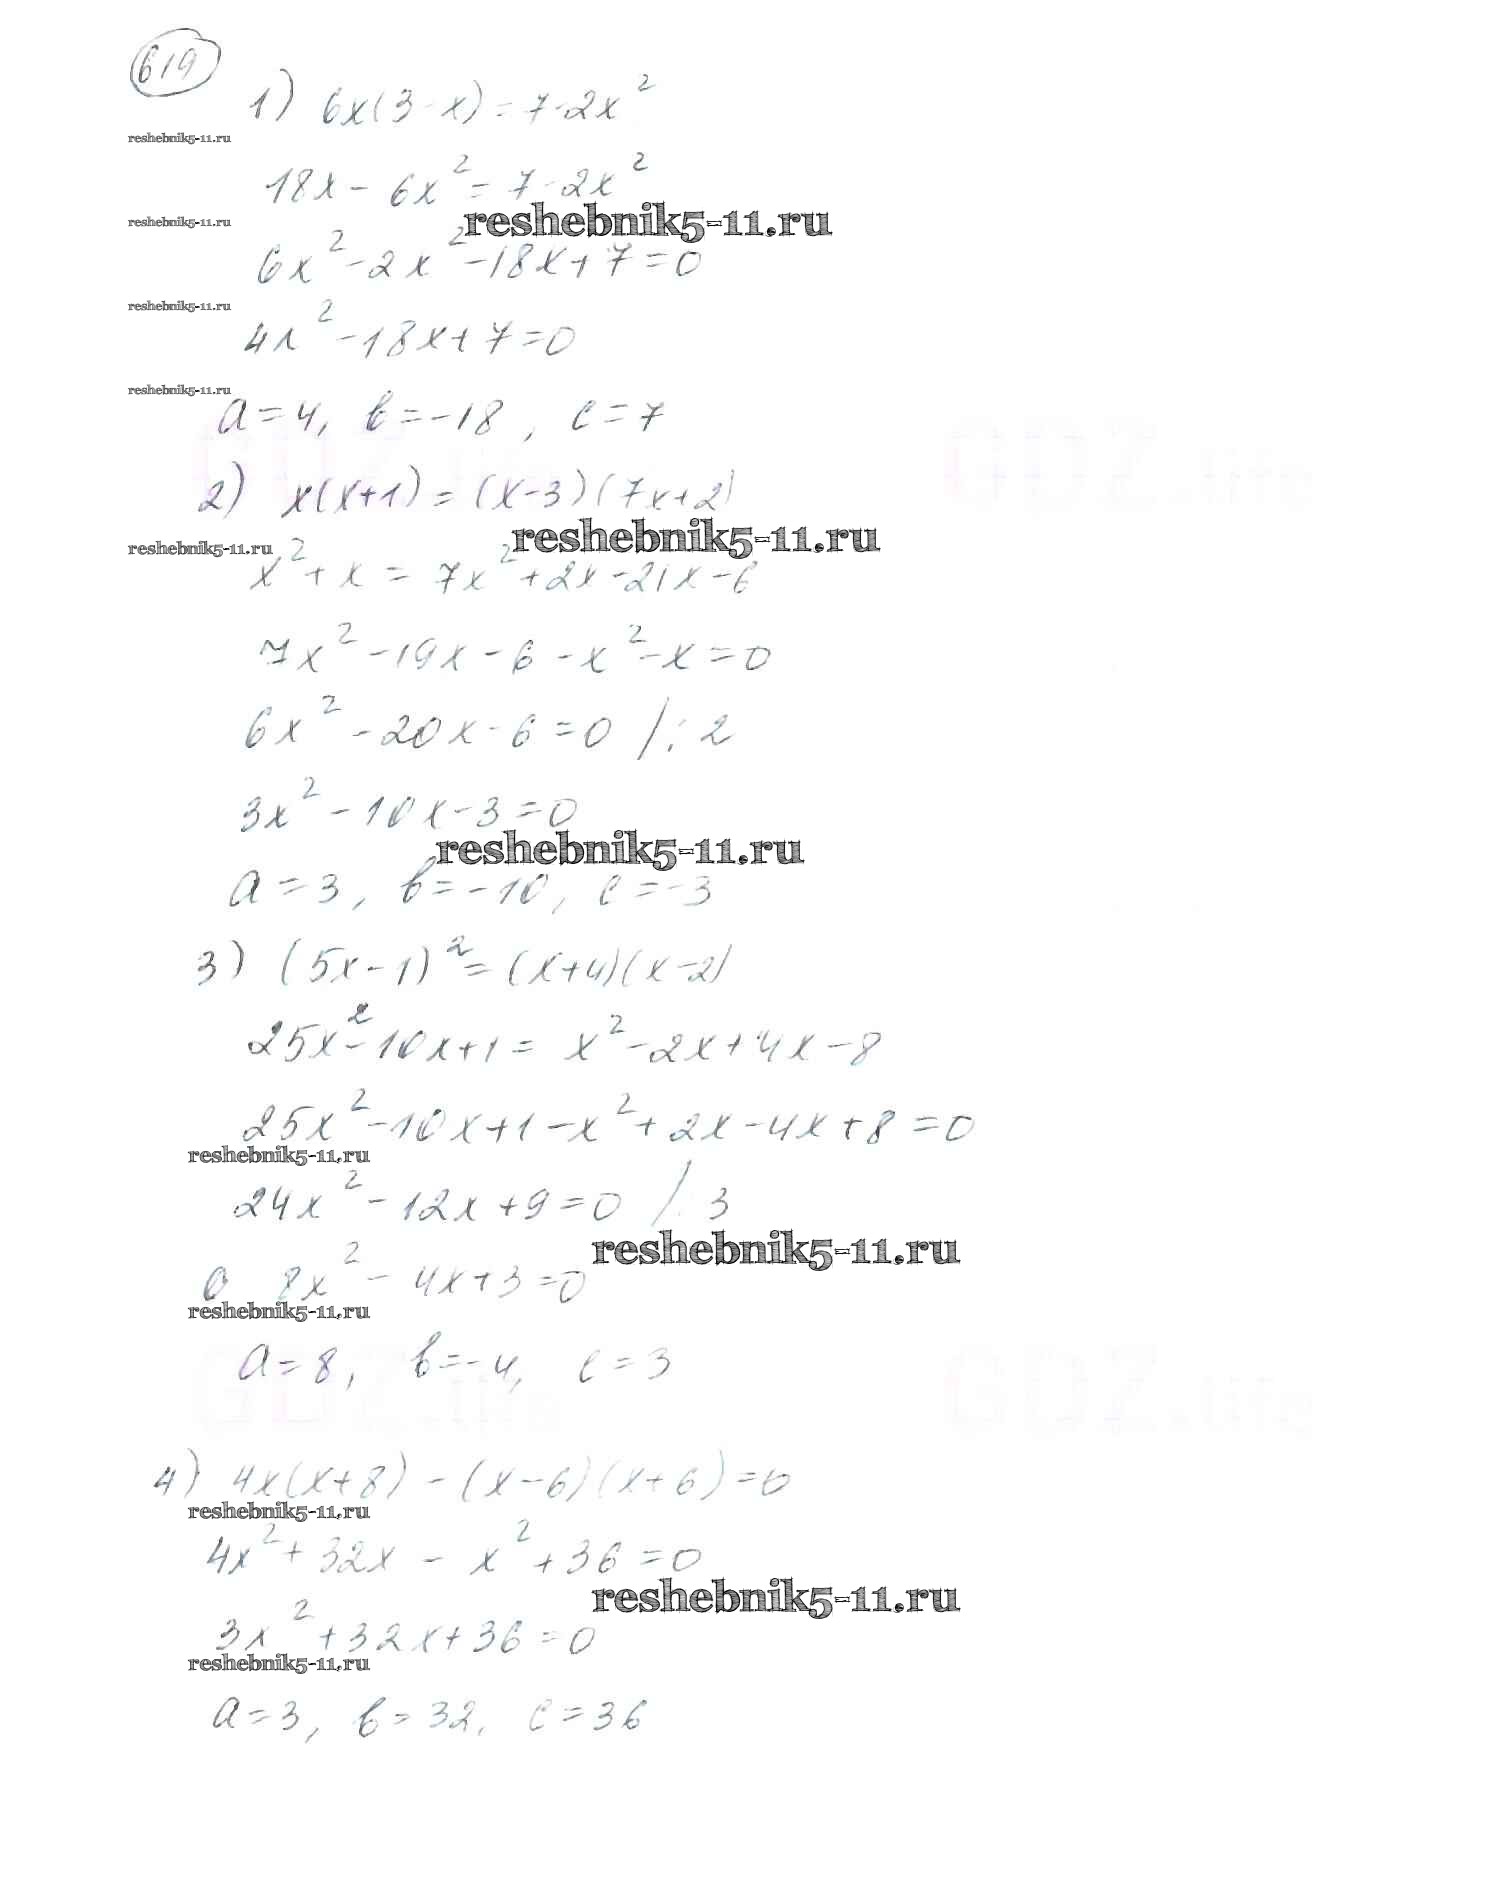 619
1) 6x(3-x)=7-2x²
reshebnik5-11.ru
18x-6x²=7-2x²
reshebnik5-11.ru
reshebnik5-11.ru
6x²-2x²-18x+7=0
reshebnik5-11.ru
4x²-18x+7=0
reshebnik5-11.ru
a=4, b=-18, c=7
GDZ.life
GDZ.life
2) x(x+1)=(x-3)(7x+2)
reshebnik5-11.ru
reshebnik5-11.ru
x²+x=7x²+2x-21x-6
7x²-19x-6-x²-x=0
6x²-20x-6=0 /:2
3x²-10x-3=0
reshebnik5-11.ru
a=3, b=-10, c=-3
3) (5x-1)²=(x+4)(x-2)
25x²-10x+1=x²-2x+4x-8
25x²-10x+1-x²+2x-4x+8=0
reshebnik5-11.ru
24x²-12x+9=0 /:3
reshebnik5-11.ru
8x²-4x+3=0
reshebnik5-11.ru
a=8, b=-4, c=3
GDZ.life
GDZ.life
4) 4x(x+8)-(x-6)(x+6)=0
reshebnik5-11.ru
4x²+32x-x²+36=0
reshebnik5-11.ru
3x²+32x+36=0
reshebnik5-11.ru
a=3, b=32, c=36